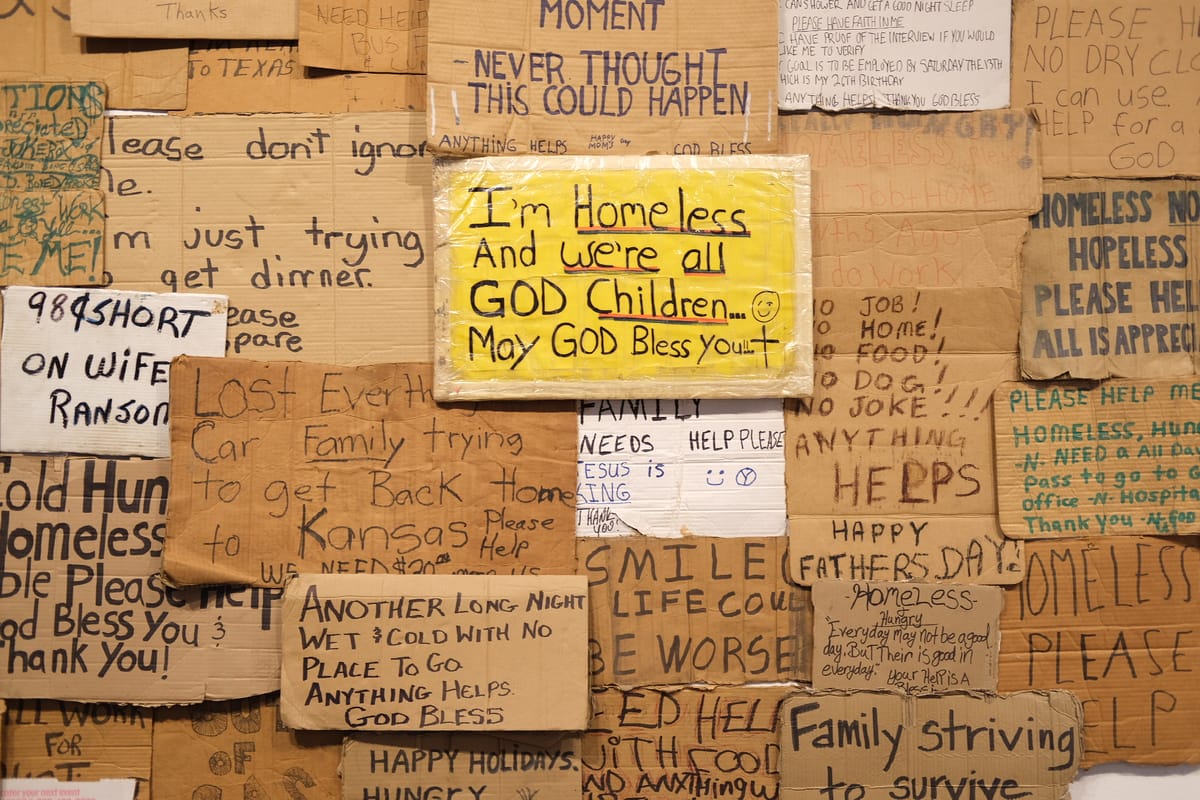 Thanks
NEED HELP
BUS
TO TEXAS
MOMENT
-NEVER THOUGHT
THIS COULD HAPPEN
ANYTHING HELPS
HAPPY
MOM'S DAY
GOD BLESS
CAN SHOWER AND GET A GOOD NIGHT SLEEP
PLEASE HAVE FAITH IN ME
HAVE PROOF OF THE INTERVIEW IF YOU WOULD
ME TO VERIFY
GOAL IS TO BE EMPLOYED BY SATURDAY THE 13TH
WHICH IS MY 26TH BIRTHDAY
ANYTHING HELPS! THANK YOU GOD BLESS
PLEASE
NO DRY
I can use.
HELP for a
GOD
WORK
ME!
lease don't ignor
e.
m just trying
get dinner.
ease
pare
I'm Homeless
And we're all
GOD Children...
May GOD Bless You!!
HUNGRY!
HOMELESS
Job HOME
Ago
do work
HOMELESS NO
HOPELESS
PLEASE HEL
ALL IS APPRECI
98¢ SHORT
ON WiFE
RANSOM
LOST Everth
Car Family trying
to get Back Home
to Kansas Please
Help
WE NEED $20
FAMILY
NEEDS HELP PLEASE
JESUS iS
KING
THANK
YOU!
NO JOB!
NO HOME!
NO FOOD!
NO DOG!
NO JOKE!!!!
ANYTHING
HELPS
HAPPY
FATHERS DAY!
PLEASE HELP ME
HOMELESS, HUN
-N- NEED a All Day
Pass to go to
office -N- Hospita
Thank you -N- GOD
Cold Hun
Homeless
ble Please Help
od Bless You &
Thank You!
ANOTHER LONG NIGHT
WET & COLD WITH NO
PLACE TO GO
ANYTHING HELPS.
GOD BLESS
SMILE
LIFE COUL
BE WORSE
-HOMELESS-
Hungry
"Everyday may not be a good
day. But Their is good in
everyday." Your Help is A
HOMELESS
PLEASE
ELP
ILL WORK
FOR
OUT
OF
GAS
HAPPY HOLIDAYS.
HUNGRY
EED HELP
WITH FOOD
AND ANYTHING
Family striving
to survive
enter your next event